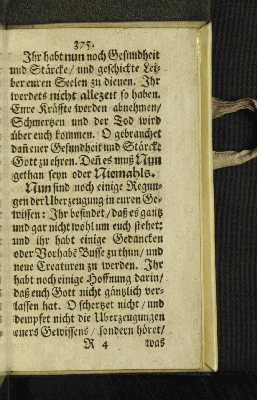 375.
Ihr habt nun noch Gesundheit
und Stärcke / und geschickte Lei-
ber euren Seelen zu dienen. Ihr
werdets nicht allezeit so haben.
Eure Kräffte werden abnehmen /
Schmertzen und der Tod wird
über euch kommen. O gebrauchet
dañ euer Gesundheit und Stärcke
Gott zu ehren. Deñ es muß Nun
gethan seyn oder Niemahls.
Nun sind noch einige Regun-
gen der Uberzeugung in euren Ge-
wissen: Ihr befindet / daß es gantz
und gar nicht wohl um euch stehet:
und ihr habt einige Gedancken
oder Vorhabē Busse zu thun / und
neue Creaturen zu werden. Ihr
habt noch einige Hoffnung darin /
daß euch Gott nicht gäntzlich ver-
lassen hat. O schertzet nicht / und
dempfet nicht die Uberzeugungen
euers Gewissens / sondern höret /
R 4 was